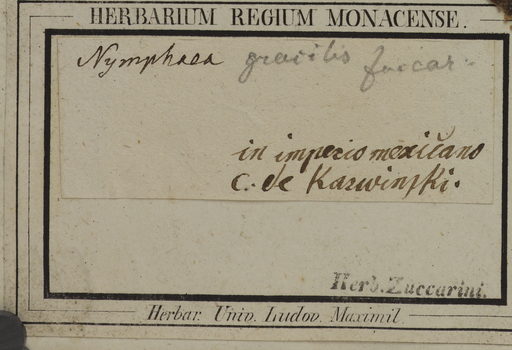 HERBARIUM REGIUM MONACENSE.
Nymphaea gracilis Zuccar.
in imperio mexicano
C. de Karwinski.
Herb. Zuccarini.
Herbar. Univ. Ludov. Maximil.